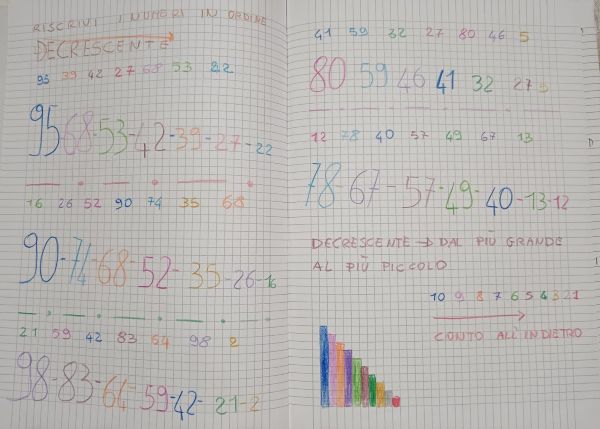 RISCRIVI I NUMERI IN ORDINE
DECRESCENTE
95 39 42 27 68 53 22
95-68-53-42-39-27-22
16 26 52 90 74 35 68
90-74-68-52-35-26-16
21 59 42 83 64 98 2
98-83-64-59-42-21-2
41 59 32 27 80 46 5
80 59 46 41 32 27 5
12 78 40 57 49 67 13
78-67-57-49-40-13-12
DECRESCENTE → DAL PIÙ GRANDE
AL PIÙ PICCOLO
10 9 8 7 6 5 4 3 2 1
CONTO ALL'INDIETRO